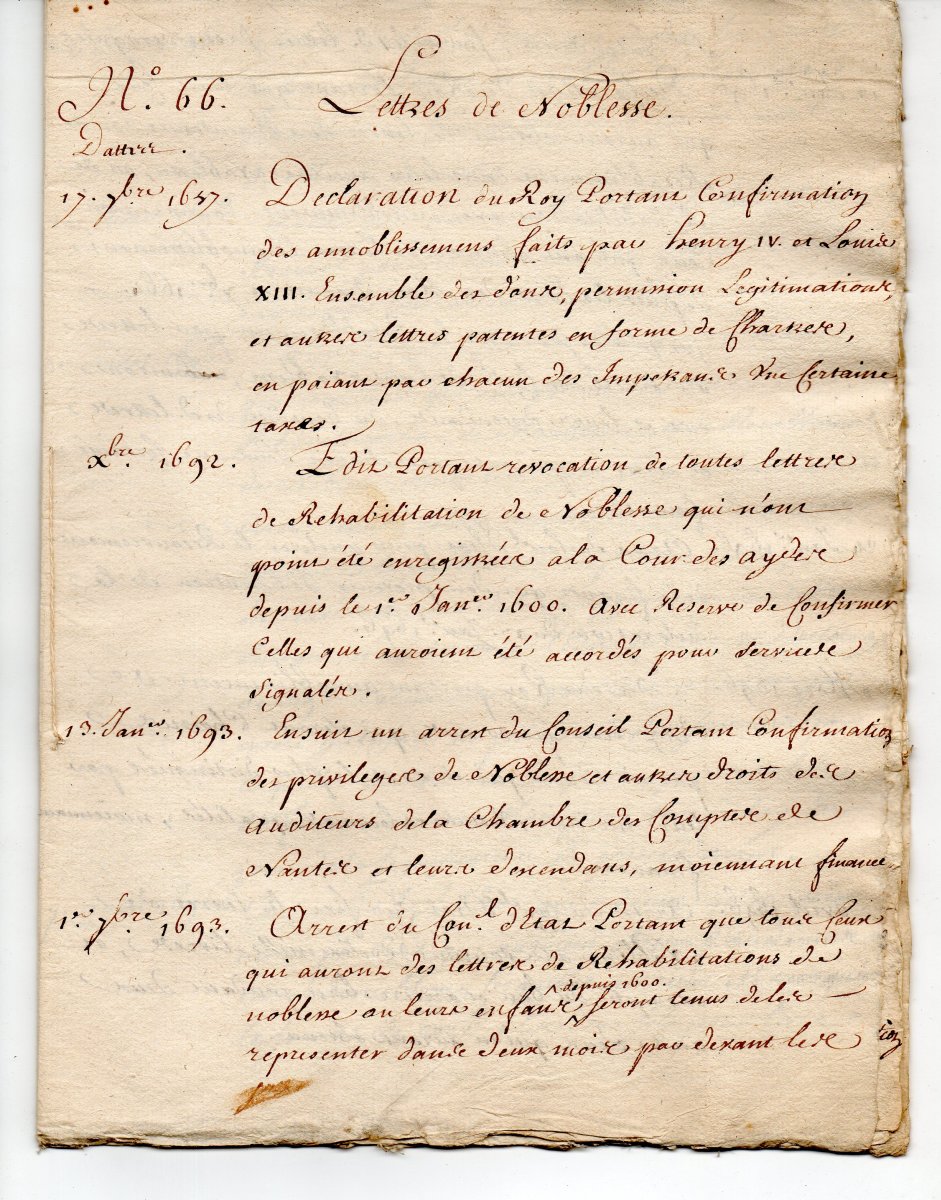 N.° 66. Lettres de Noblesse.
Dattes.
17. 7bre 1657. Declaration du Roy Portant Confirmation
des annoblissemens faits par henry IV. et Louis
XIII. Ensemble des dons, permission Legitimations,
et autres lettres patentes en forme de Chartres,
en paiant par chacun des Impetrans Une Certaine
taxes.
Xbre. 1692. Edit Portant revocation de toutes lettres
de Rehabilitation de Noblesse qui n'ont
point été enregistrées a la Cour des aydes
depuis le 1.er Janer. 1600. avec Reserve de Confirmer
Celles qui auroient été accordés pour services
signalés.
13. Janer. 1693. Ensuit un arrest du Conseil Portant Confirmation
des privileges de Noblesse et autres droits des
Auditeurs de la Chambre des Comptes de
Nantes et leurs descendans, moiennant finance.
1.er 7bre. 1693. Arrest du Con.l d'Etat Portant que tous Ceux
qui auront des lettres de Rehabilitations de
noblesse ou leurs enfans ^depuis 1600. seront tenus de les
representer dans deux mois par devant les